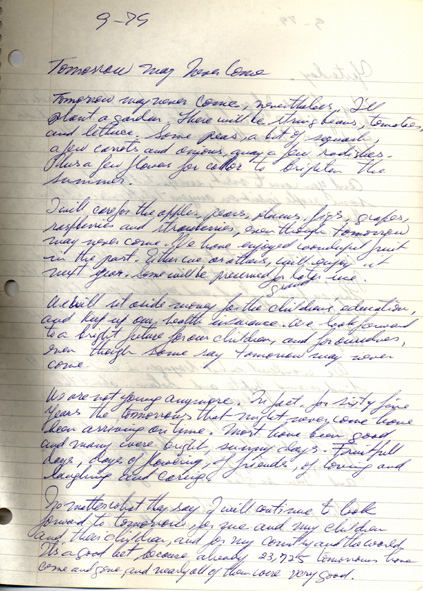 9-79
Tomorrow may Never Come
Tomorrow may never come, nevertheless, I'll
plant a garden. There will be string beans, tomatoes,
and lettuce. Some peas, a bit of squash,
a few carrots and onions, a few radishes.
Plus a few flowers for color to brighten the
summer.
I will care for the apples, pears, plums, figs, grapes,
raspberries and strawberries, even though tomorrow
may never come. We have enjoyed wonderful fruit
in the past. Either we or others, will enjoy it
next year. Some will be preserved for later use.
grand
We will set aside money for the childrens education,
and keep up our health insurance. We look forward
to a bright future for our children, and for ourselves,
even though some say tomorrow may never
come.
We are not young anymore. In fact, for sixty five
years the tomorrows that might never come have
been arriving on time. Most have been good
and many were bright, sunny days. Fruitfull
days, days of flowering, of friends, of loving and
laughing and caring.
No matter what they say I will continue to look
forward to tomorrow, for me and my children
and their children, and for my country and the world.
Its a good bet, because already 23,725 tomorrows have
come and gone, and nearly all of them were very good.